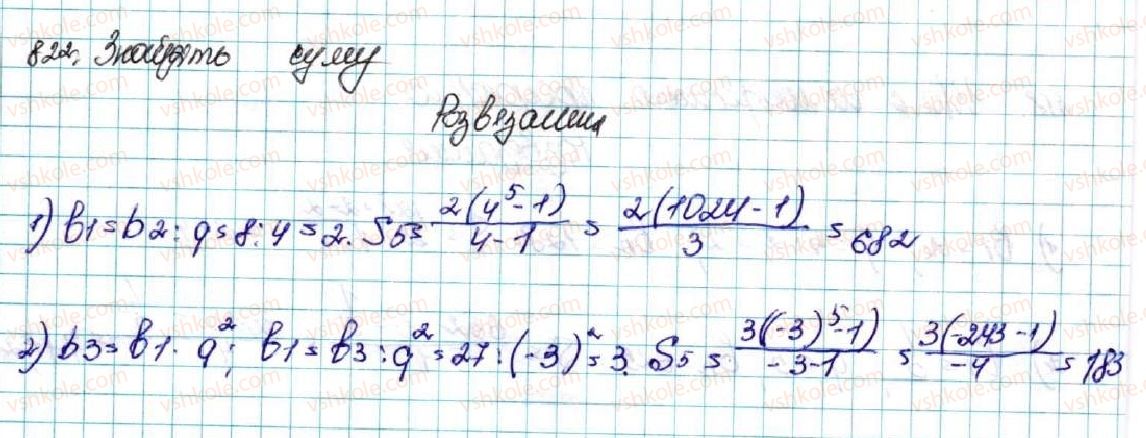 822. Знайдіть суму
Розвезання
1) b1 = b2 : q = 8 : 4 = 2. S5 = 2(4^5 - 1) / 4 - 1 = 2(1024 - 1) / 3 = 682
2) b3 = b1 · q^2; b1 = b3 : q^2 = 27 : (-3)^2 = 3. S5 = 3(-3)^5 - 1) / -3 - 1 = 3(-243 - 1) / -4 = 183